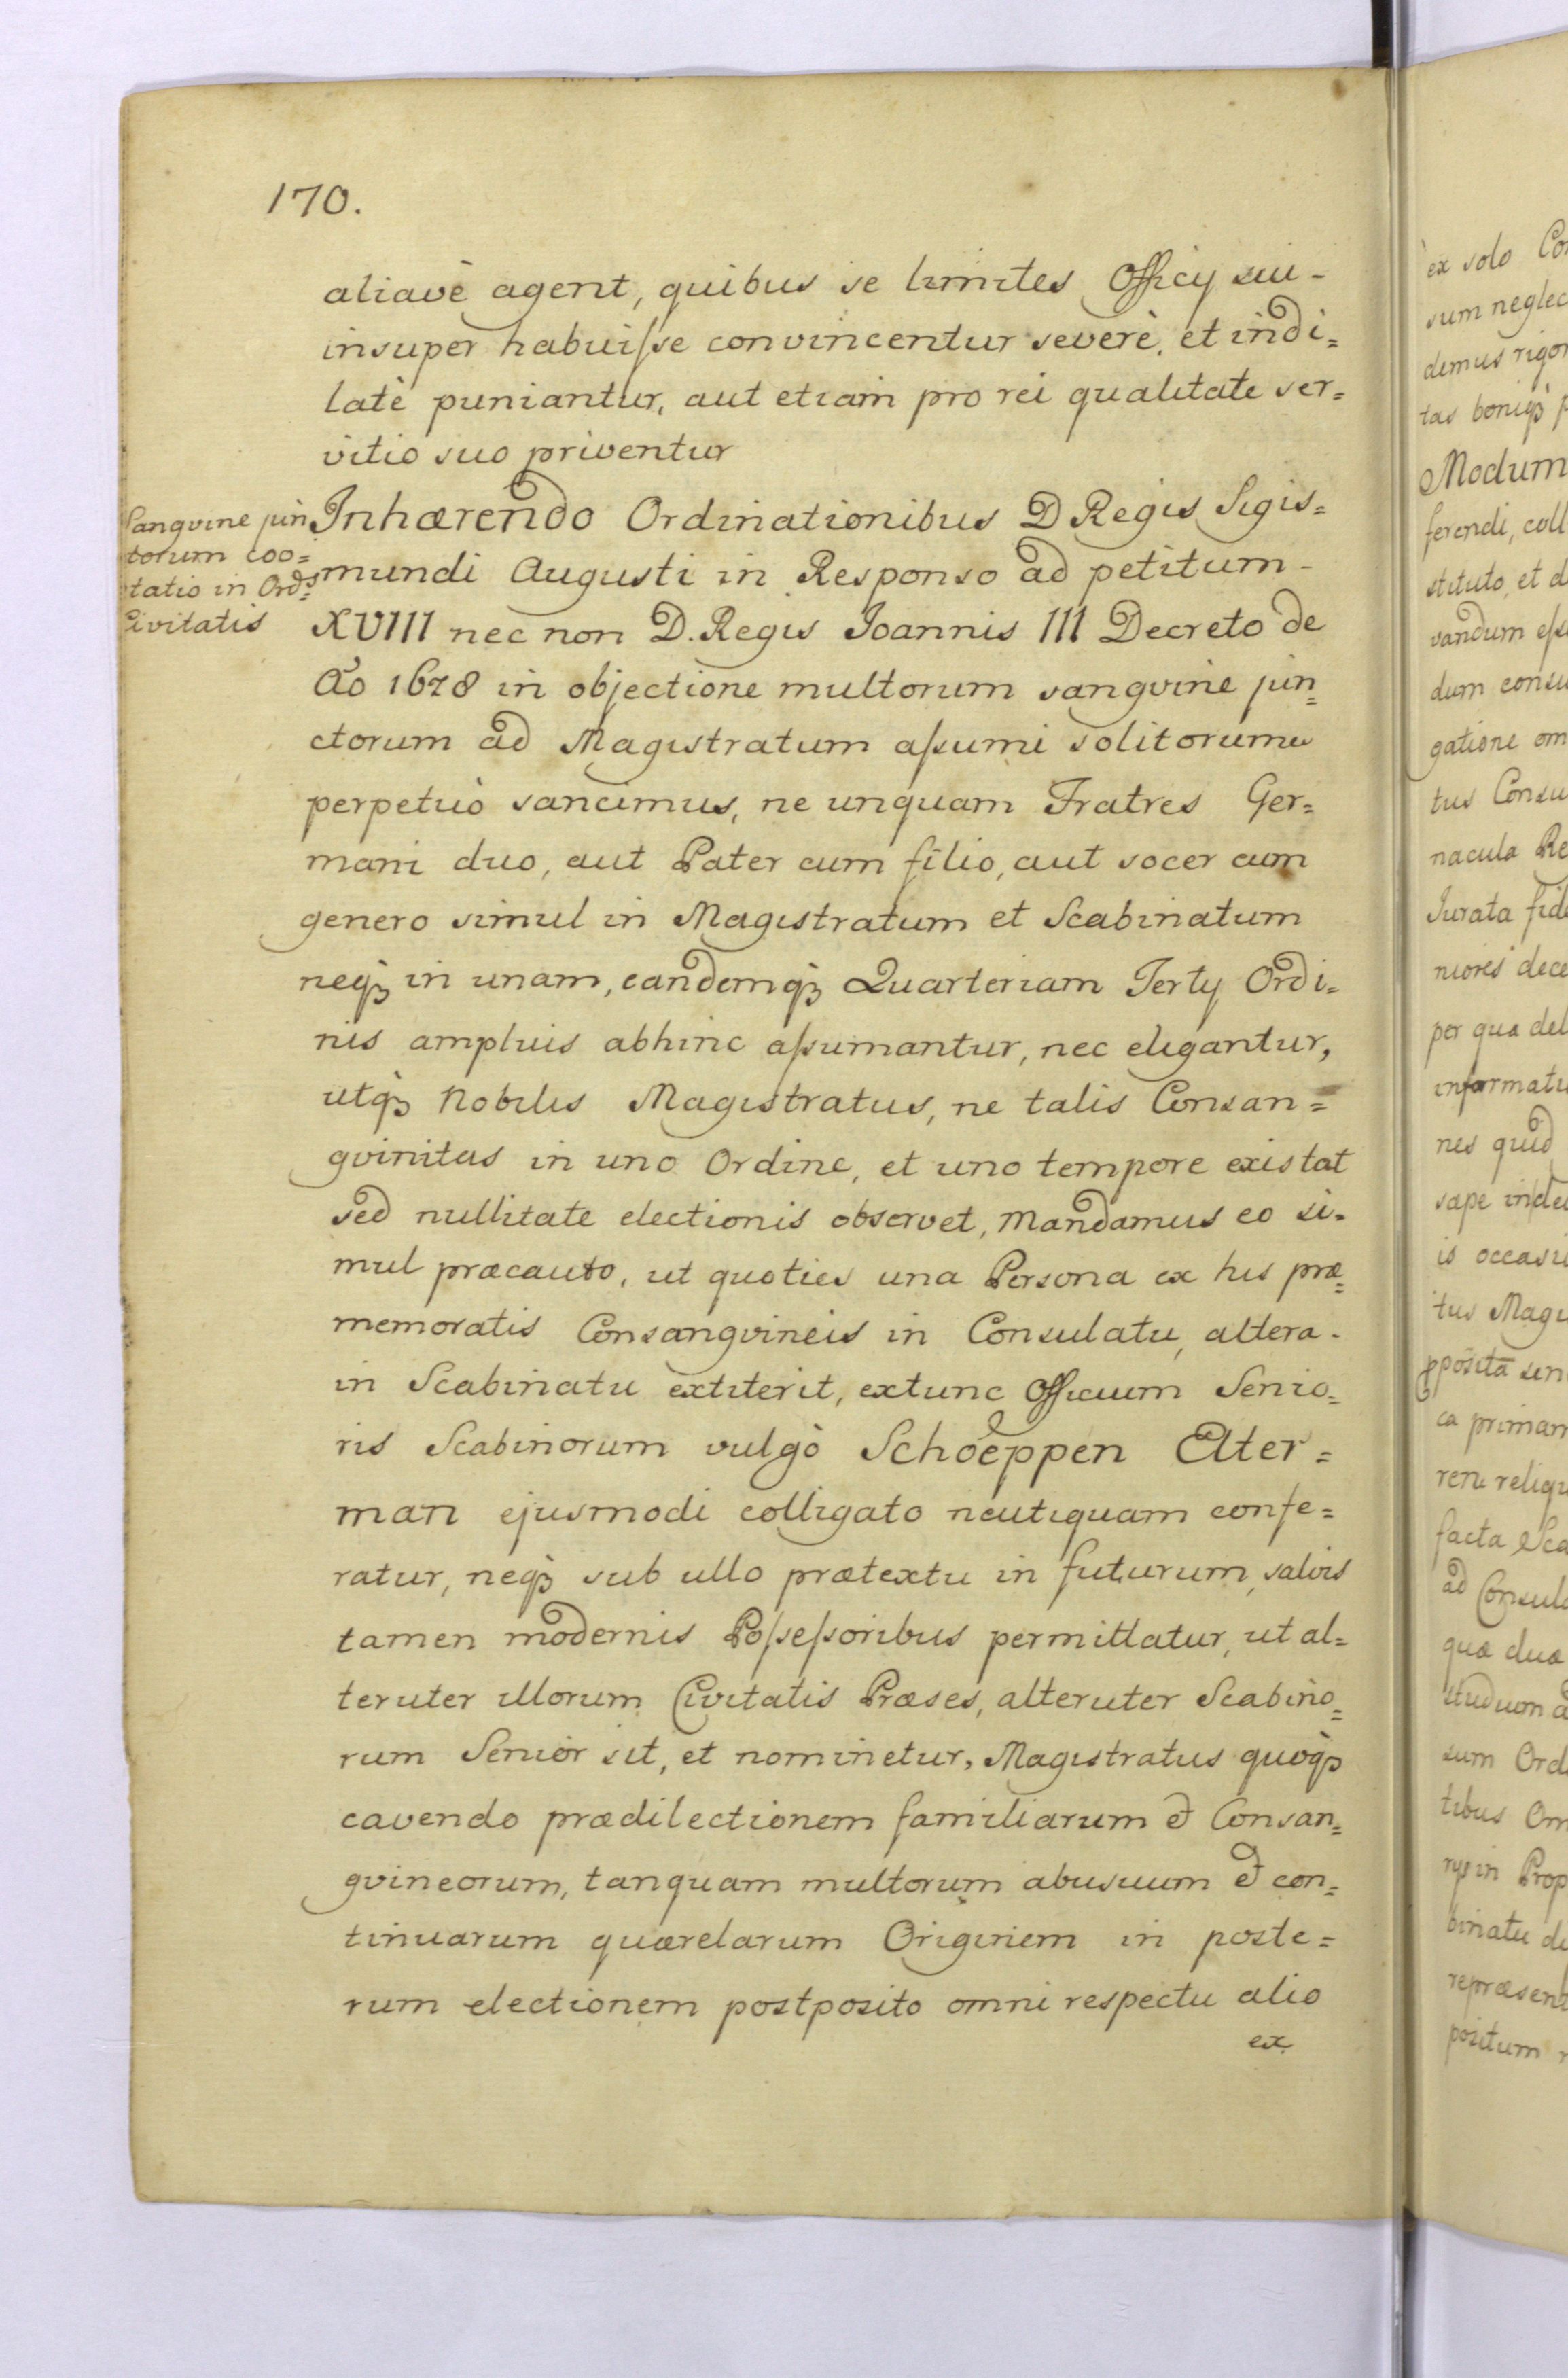 170.
aliavè agent, quibus se limites Officÿ sui-
insuper habuisse convincentur severè, et indi=
latè puniantur, aut etiam pro rei qualitate ser=
vitio suo priventur
Sangvine jun
torum coo=
tatio in Ord:
Civitatis
Inhærendo Ordinationibus D Regis Sigis=
mundi Augusti in Responso ad petitum-
XVIII nec non D. Regis Joannis III Decreto de
Ao 1678 in objectione multorum sangvine jun=
ctorum ad Magistratum assumi solitorum
perpetuò sancimus, ne unquam Fratres Ger=
mani duo, aut Pater cum filio, aut socer cum
genero simul in Magistratum et Scabinatum
neq3 in unam, eandemq3 Quarteriam Tertÿ Ordi=
nis amplius abhinc assumantur, nec eligantur,
utq3 Nobilis Magistratus, ne talis Consan=
gvinitas in uno Ordine, et uno tempore existat
sed nullitate electionis observet, Mandamus eo si=
mul præcauto, ut quoties una Persona ex his præ=
memoratis Consangvineis in Consulatu, altera-
in Scabinatu extiterit, extunc Officium Senio=
ris Scabinorum vulgò Schöeppen Elter=
man ejusmodi colligato neutiquam confe=
ratur, neq3 sub ullo prætextu in futurum, salvis
tamen modernis Possessoribus permittatur, ut al=
teruter illorum Civitatis Præses, alteruter Scabino=
rum Senior sit, et nominetur, Magistratus quoq3
cavendo prædilectionem familiarum et Consan=
gvineorum, tanquam multorum abusuum et con=
tinuarum quærelarum Originem in poste=
rum electionem postposito omni respectu alio
ex
ex solo
sum neglec
demus rigor
tas boniq3
Modum
ferendi, coll
stituto, et d
vandum ess
dum consu
gatione om
tus Consu
nacula Re
Jurata fide
niores dece
per qua del
informatu
nes quid
sæpe
is occasi
tus Magi
posita sen
ca primam
reni reliqu
facta Sca
ad Consula
quæ duæ
sum Ord
tibus Om
in Prop
binatu de
repræsent
positum